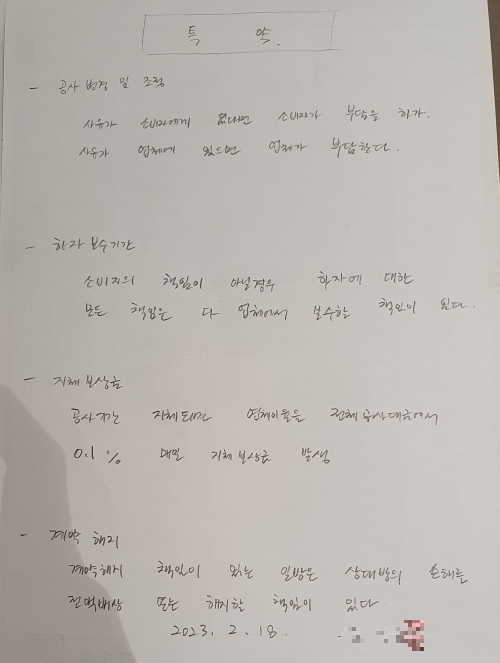 특 약.
- 공사 변경 및 조정
사유가 소비자에게 있다면 소비자가 부담을 하가.
사유가 업체에 있으면 업체가 부담한다.
- 하자 보수기간
소비자의 책임이 아닐경우 하자에 대한
모든 책임은 다 업체에서 보수할 책임이 된다.
- 지체 보상금
공사기간 지체되면 연체이율은 전체 공사대금에서
0.1% 매일 지체보상금 발생
- 계약 해지
계약해지 책임이 있는 일방은 상대방의 손해를
전액배상 또는 해지할 책임이 있다.
2023. 2. 18.